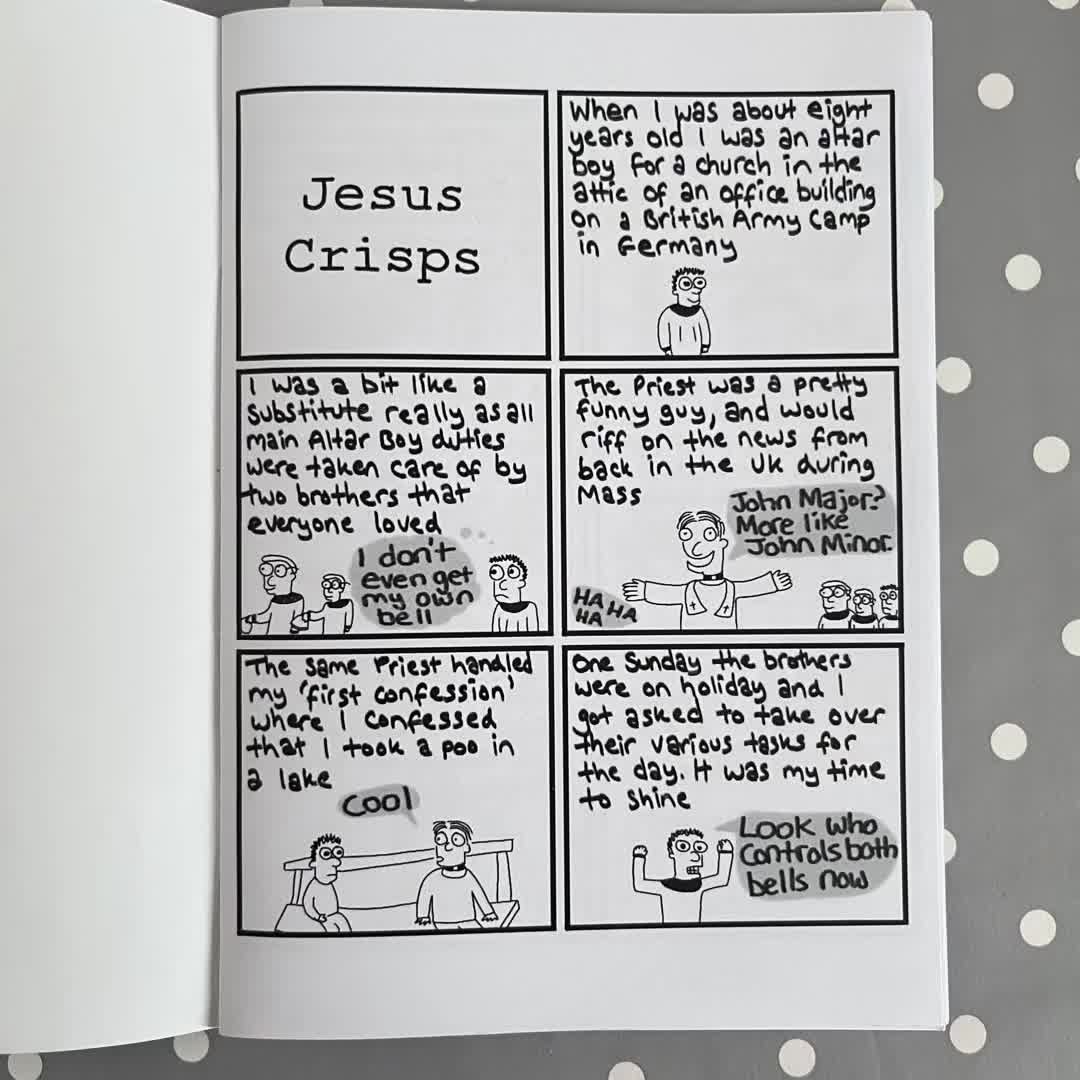 Jesus
Crisps
When I was about eight
years old I was an altar
boy for a church in the
attic of an office building
on a British Army Camp
in Germany
I was a bit like a
substitute really as all
main Altar Boy duties
were taken care of by
two brothers that
everyone loved
I don't
even get
my own
bell
The Priest was a pretty
funny guy, and would
riff on the news from
back in the UK during
Mass
John Major?
More like
John Minor.
HA HA
HA HA
The same Priest handled
my 'first confession'
where I confessed
that I took a poo in
a lake
Cool
One Sunday the brothers
were on holiday and I
got asked to take over
their various tasks for
the day. It was my time
to shine
Look who
controls both
bells now